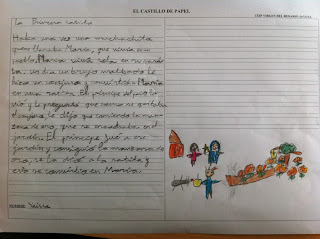 EL CASTILLO DE PAPEL
CEIP VIRGEN DEL ROSARIO
La Princesa ratita
Había una vez una muchachita
que se llamaba María, que vivía en un
castillo. María vivía sola en su casi-
ta. Un día un brujo malvado le
hizo un conjuro y convirtió a María
en una ratita. El príncipe del pueblo
vió y le preguntó que como se quitaba
el conjuro, le dijo que comiendo la man-
zana de oro, que se encontraba en el
jardín. El príncipe fué a ese
jardín y consiguió la manzana de
oro, se la dió a la ratita y
esto se convirtió en María.
NOMBRE: Yaiza